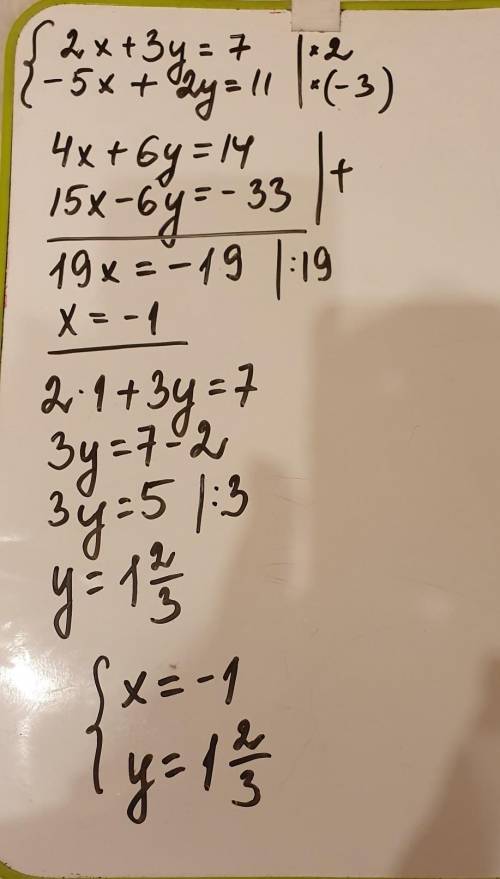 { 2x+3y=7 | *2
-5x + 2y=11 | *(-3)
4x+6y=14 | +
15x-6y=-33
19x=-19 |:19
x=-1
2·1+3y=7
3y=7-2
3y=5 |:3
y=1 2/3
{ x=-1
y=1 2/3